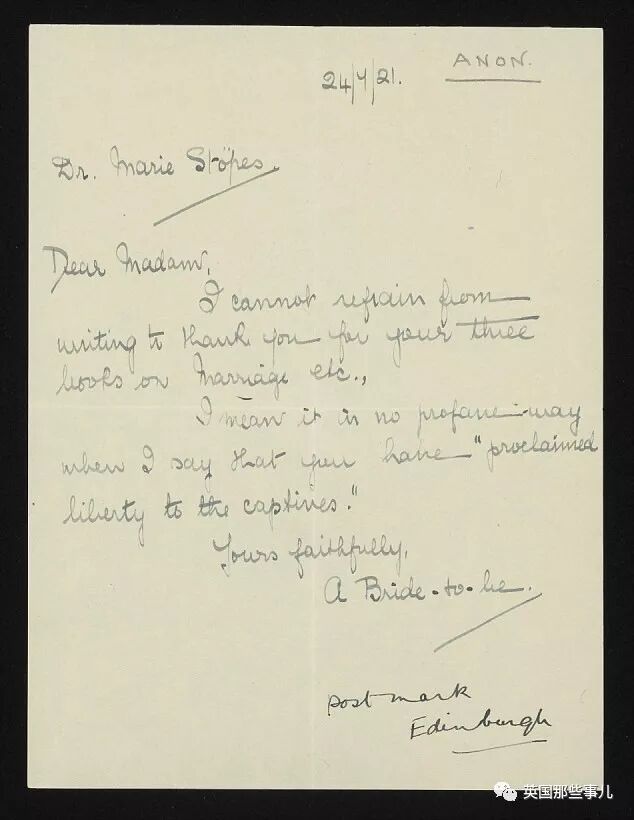 ANON.
24/4/21.
Dr. Marie Stöpes
Dear Madam,
I cannot refrain from
writing to thank you for your three
books on Marriage etc.,
I mean it in no profane way
when I say that you have "proclaimed
liberty to the captives."
Yours faithfully,
A Bride-to-be.
post mark
Edinburgh
英国那些事儿